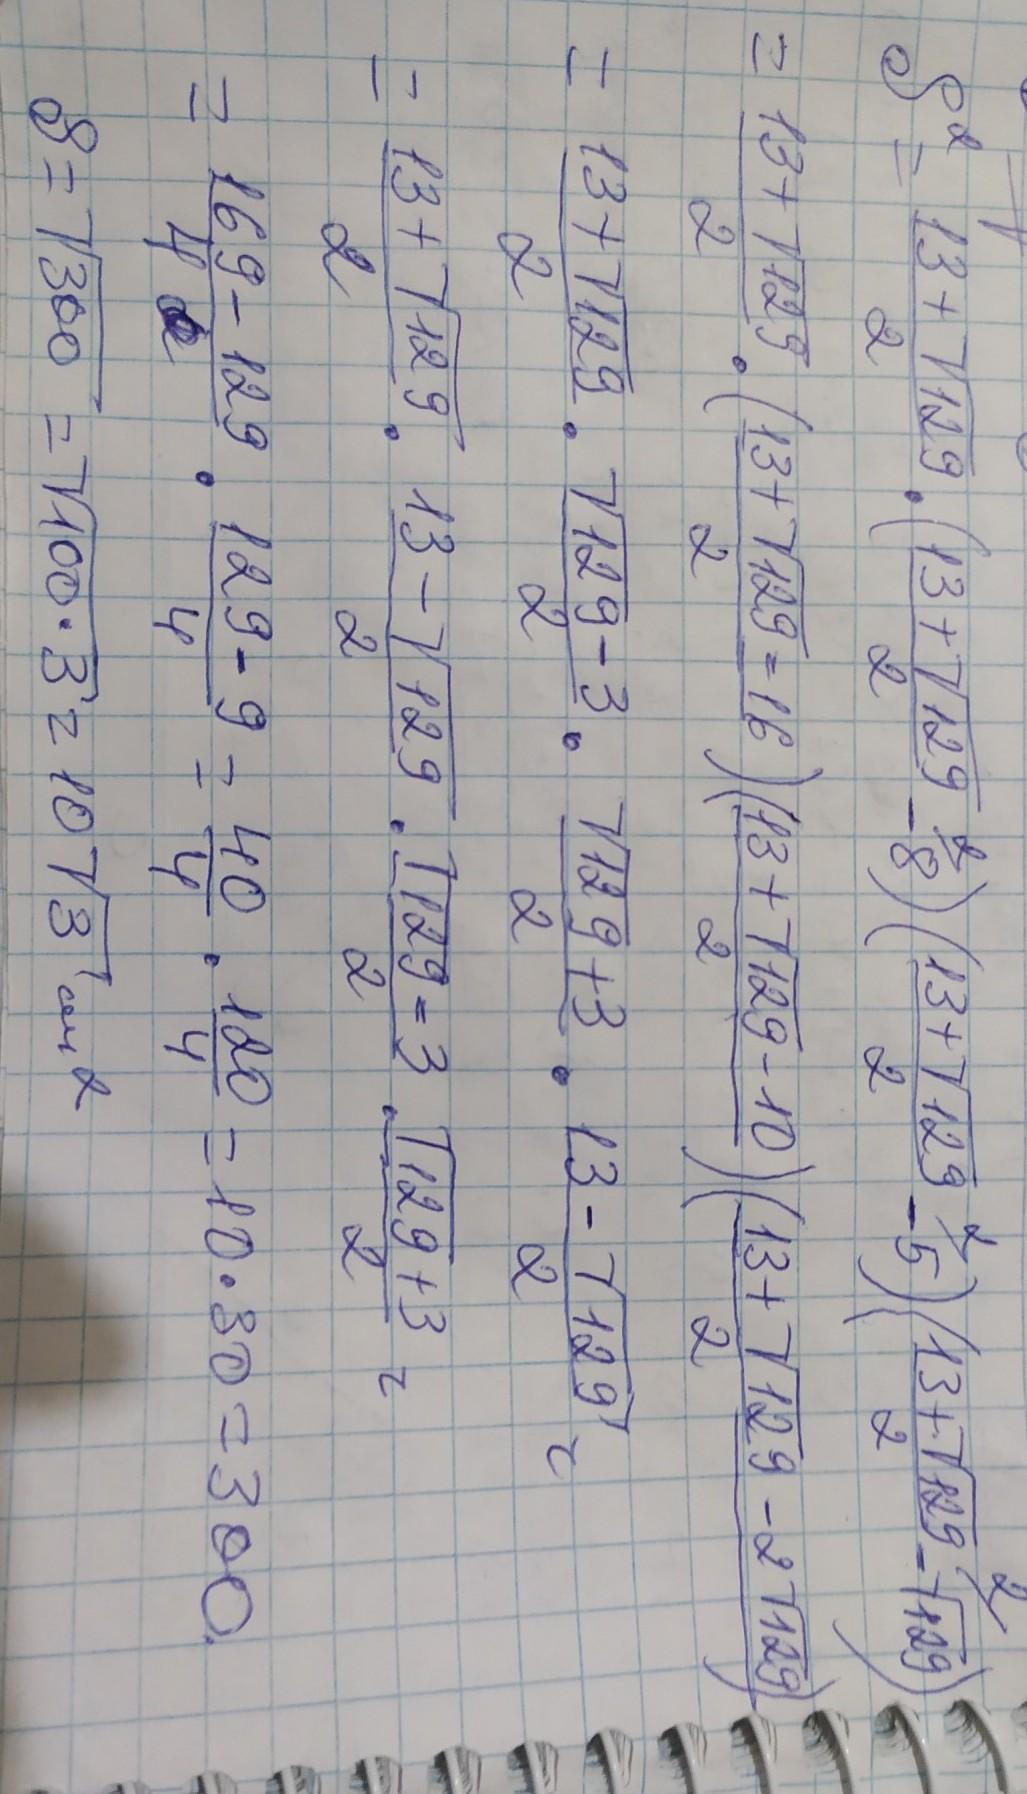 S² = (13+√129)/2 · ((13+√129)/2 - 8²)((13+√129)/2 - 5²)((13+√129)/2 - √129²)
= (13+√129)/2 · ((13+√129=16)/2)((13+√129-10)/2)((13+√129-2√129)/2)
= (13+√129)/2 · (√129-3)/2 · (√129+3)/2 · (13-√129)/2 =
= (13+√129)/2 · (13-√129)/2 · (√129=3)/2 · (√129+3)/2 =
= (169-129)/4 · (129-9)/4 = 40/4 · 120/4 = 10·30 = 300.
S = √300 = √100·3 = 10√3 см2